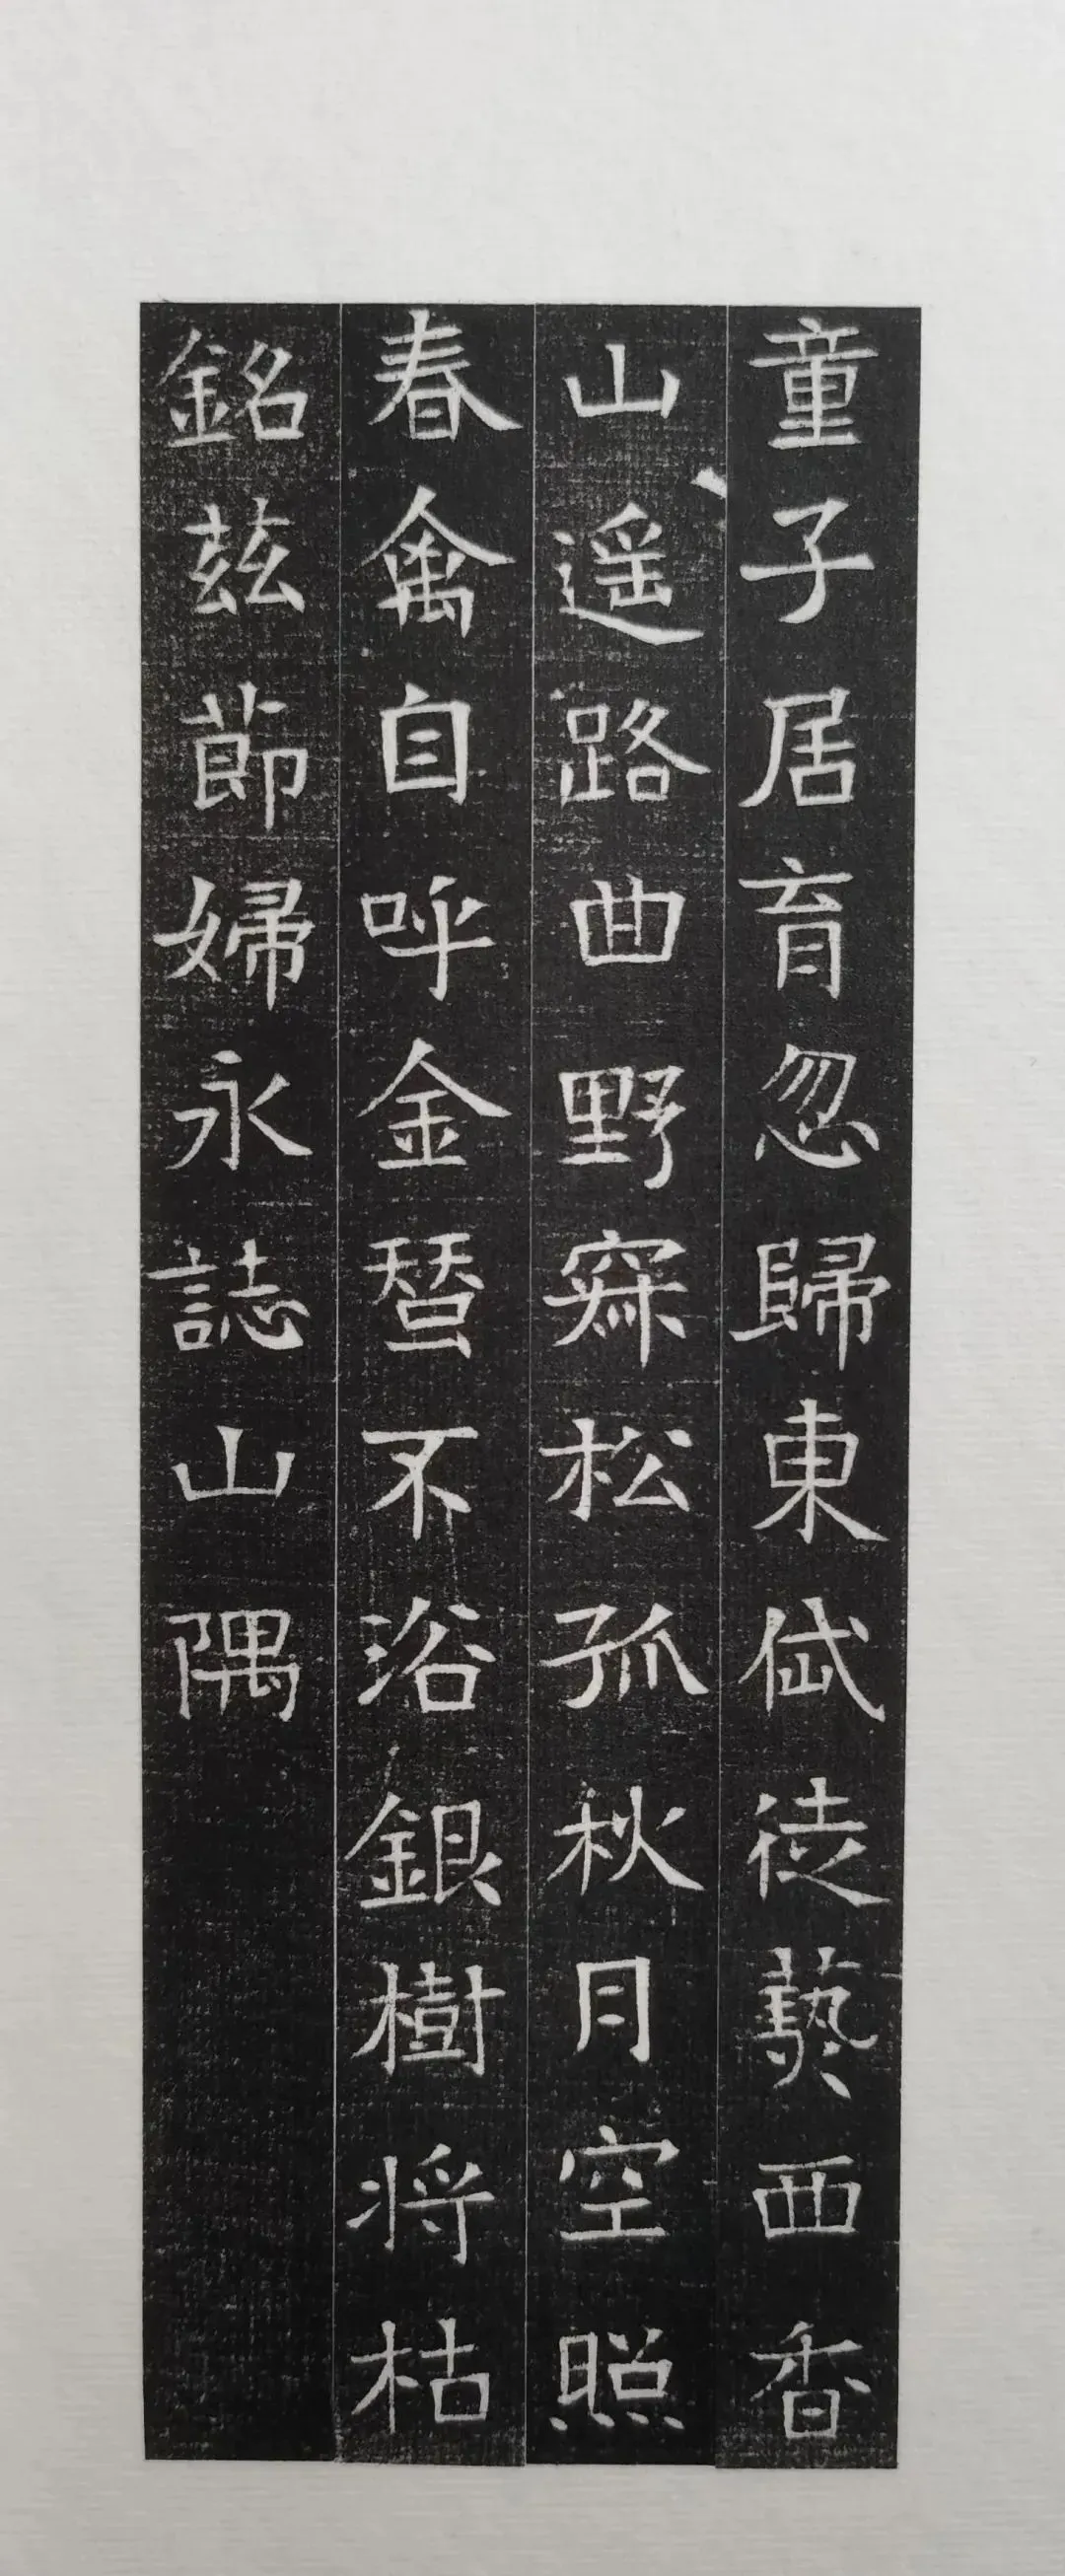 童子居育忽歸東岱徒爇西香
山遥路曲野寂松孤秋月空照
春禽自呼金琴不浴銀樹将枯
銘兹節婦永誌山隅